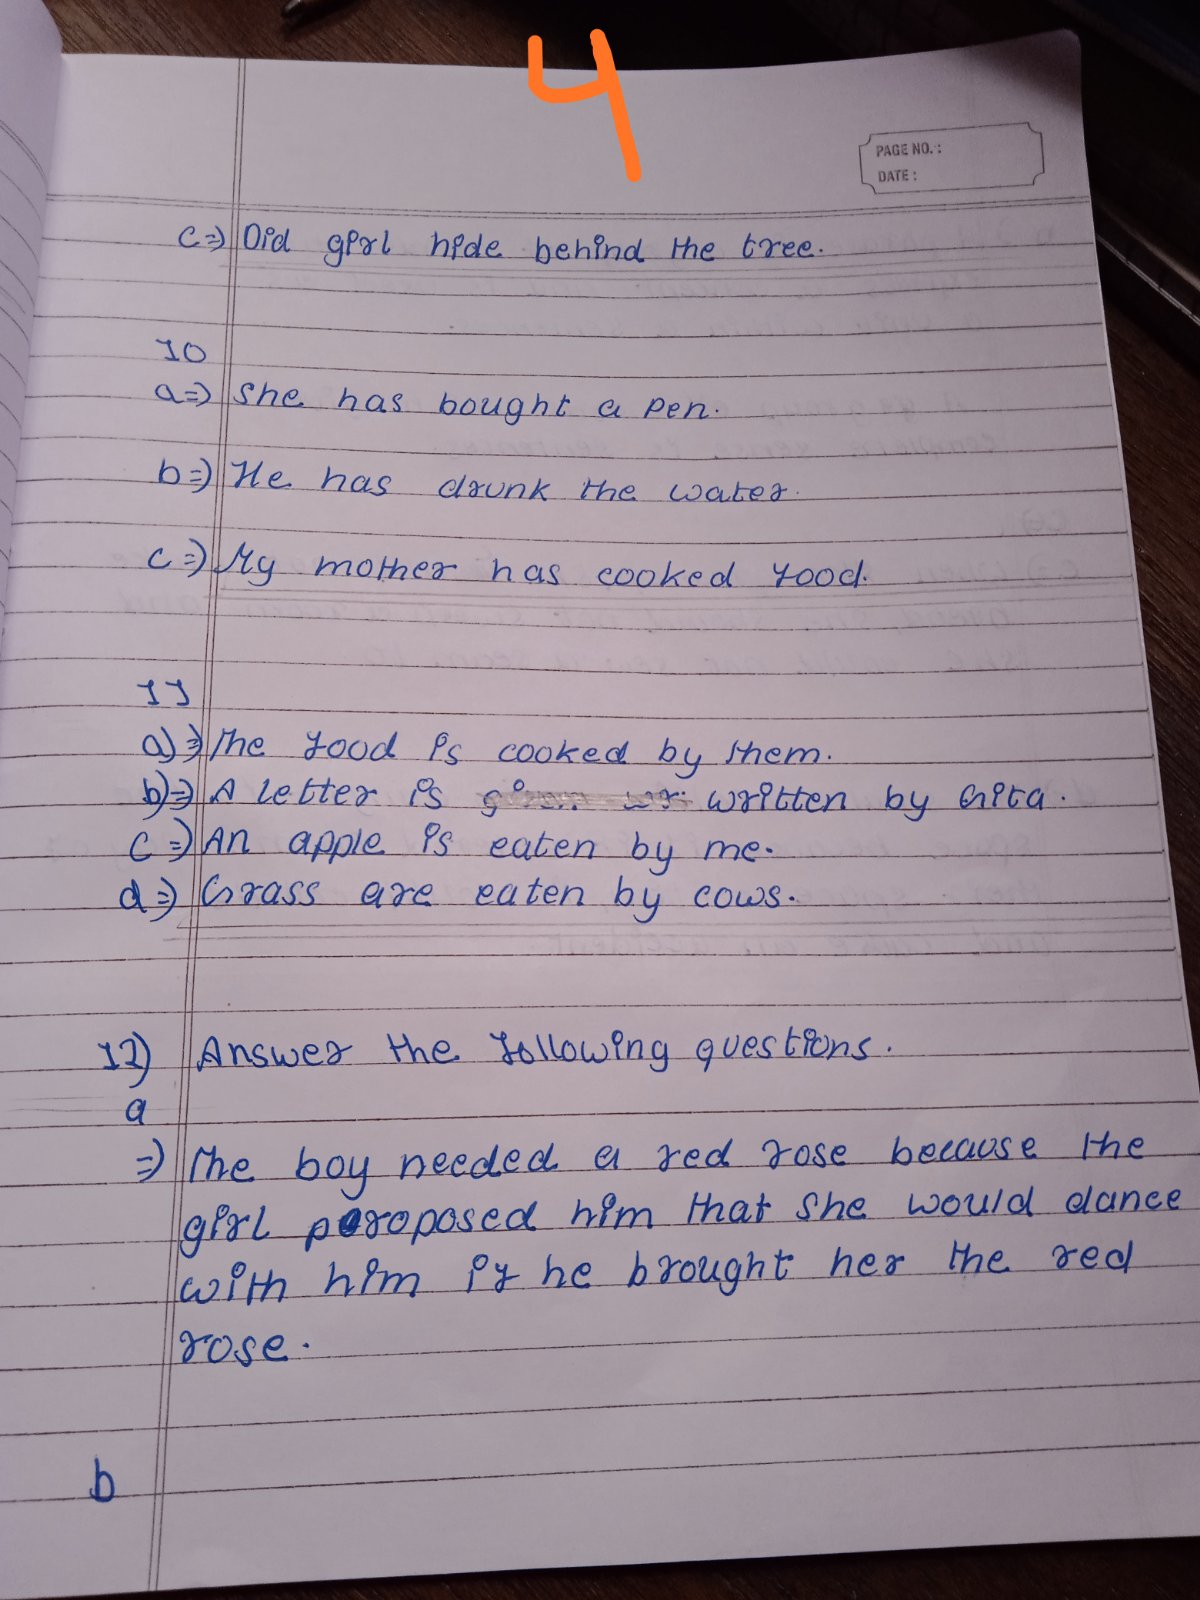 4
PAGE NO. :
DATE :
c⇒ Did girl hide behind the tree.
10
a⇒ She has bought a pen.
b⇒ He has drunk the water.
c⇒ My mother has cooked food.
11
a)⇒ The food is cooked by them.
b)⇒ A letter is written by Gita.
c⇒ An apple is eaten by me.
d⇒ Grass are eaten by cows.
12) Answer the following questions.
a
⇒ The boy needed a red rose because the
girl proposed him that she would dance
with him if he brought her the red
rose.
b